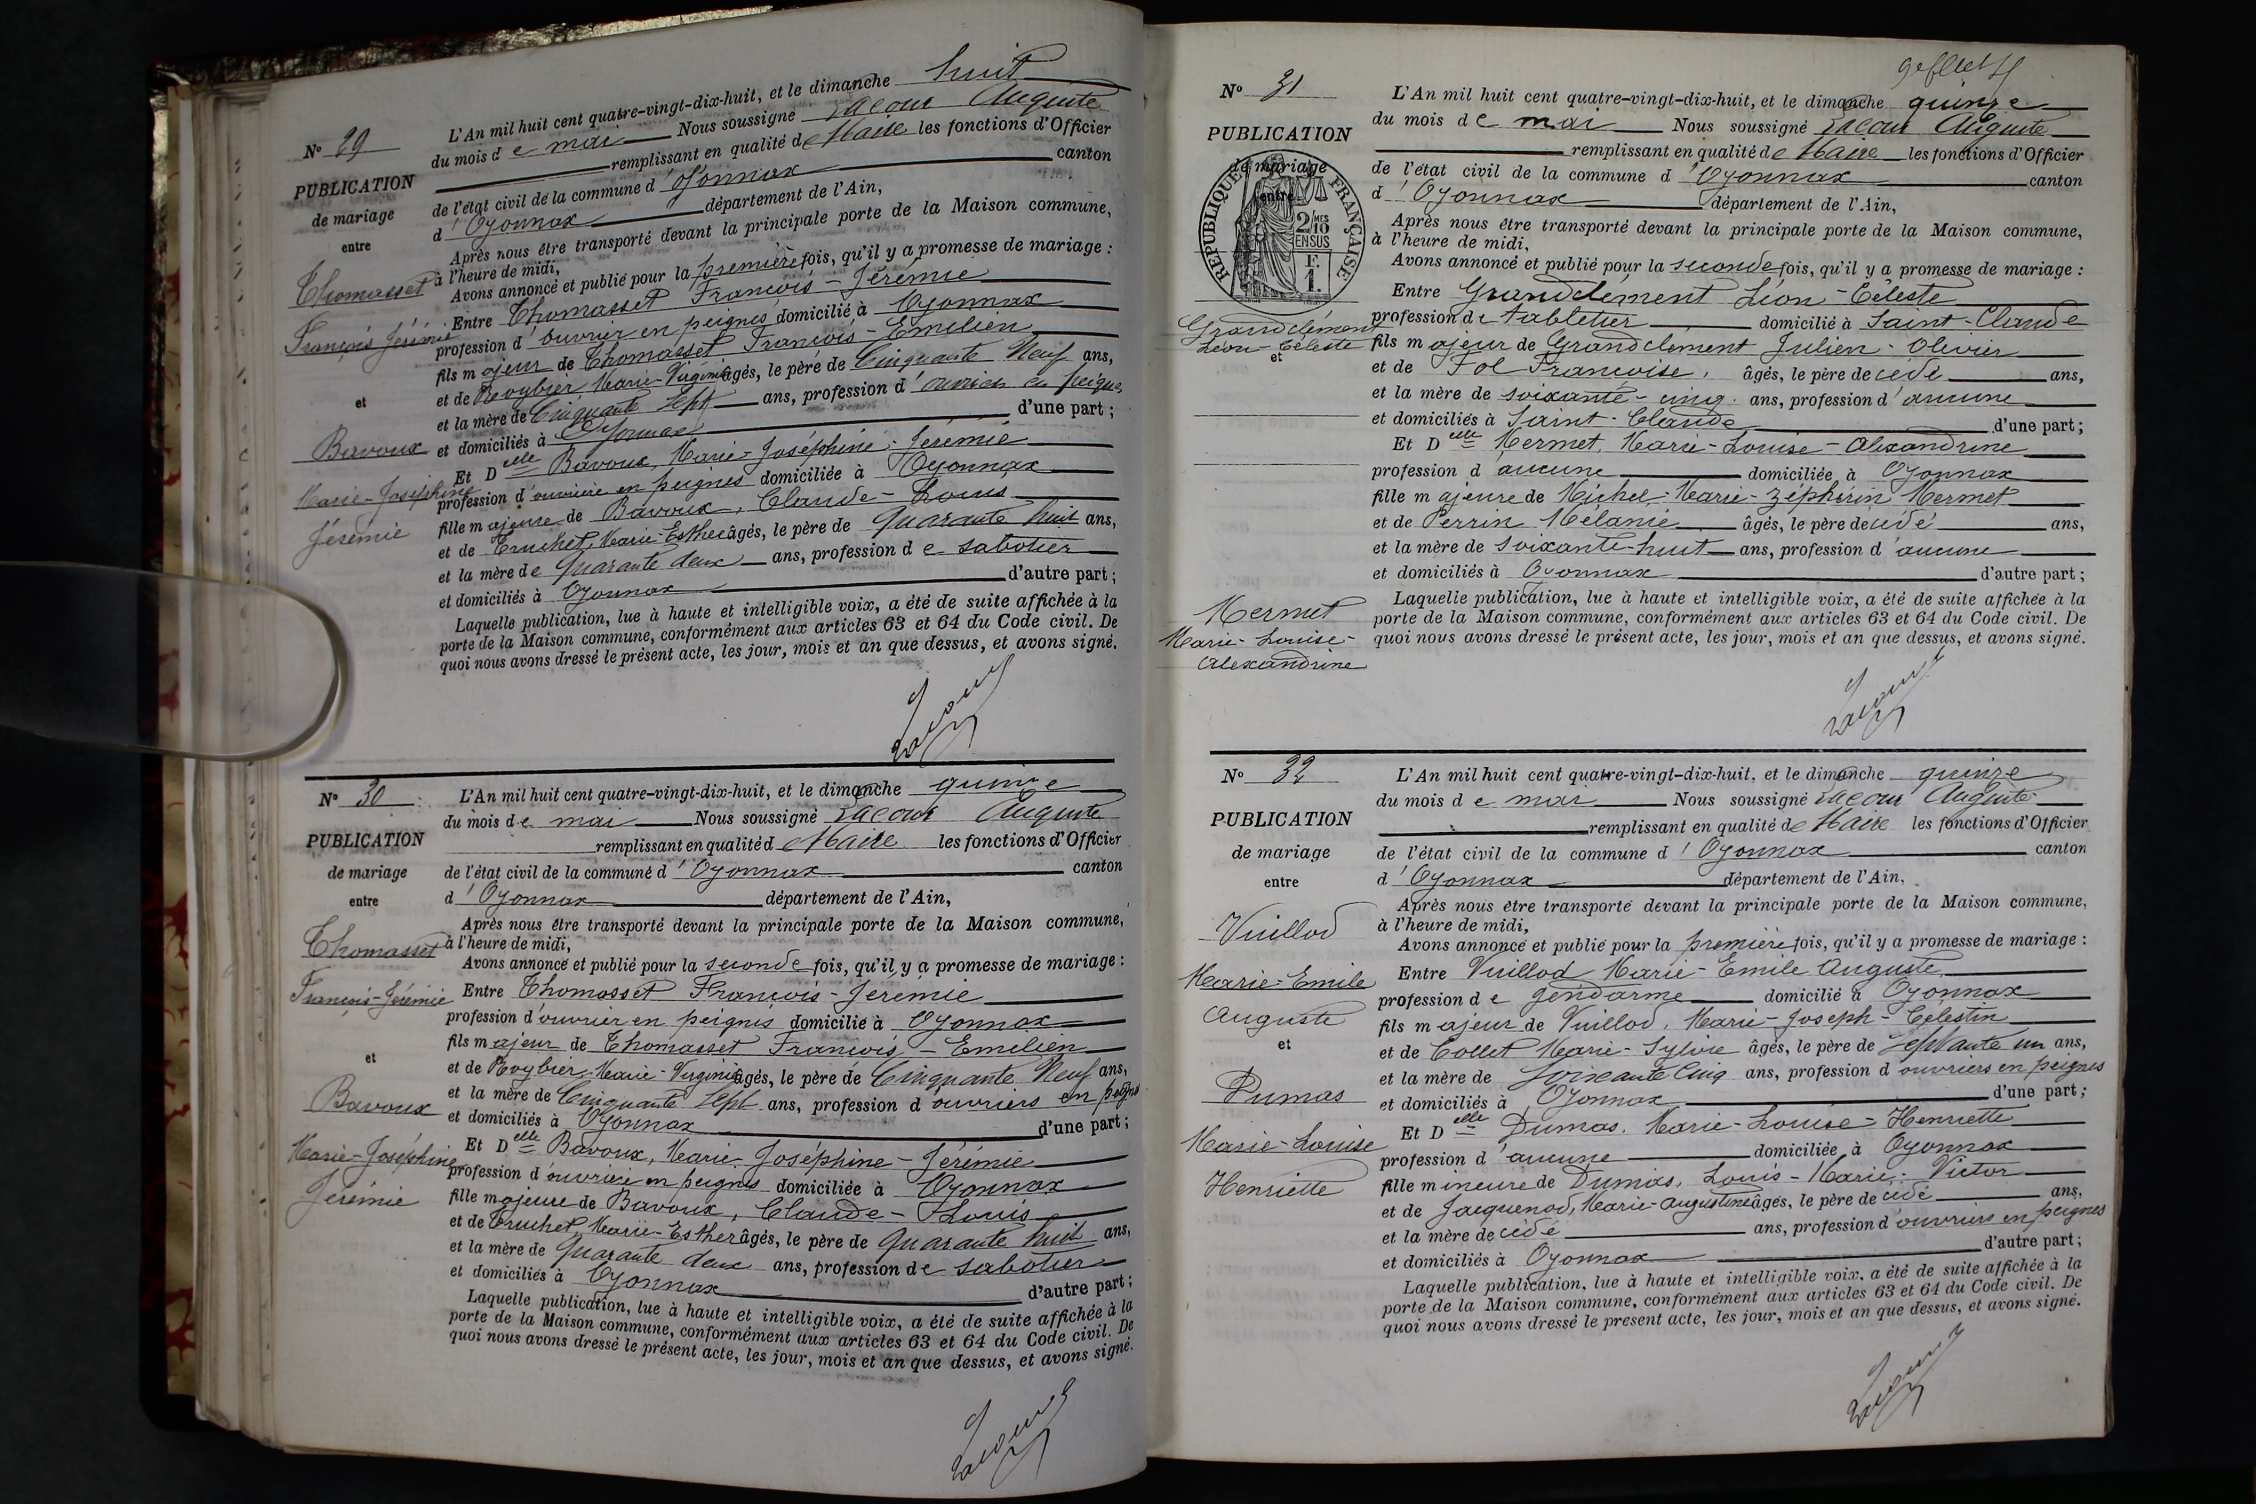 Nº 29
PUBLICATION
de mariage
entre
Thomasset
François Jérémie
et
Bavoux
Marie-Joséphine
Jérémie
L'An mil huit cent quatre-vingt-dix-huit, et le dimanche huit
du mois de mai Nous soussigné Lacour Auguste
remplissant en qualité de Maire les fonctions d'Officier
de l'état civil de la commune d'Oyonnax canton
d'Oyonnax département de l'Ain,
Après nous être transporté devant la principale porte de la Maison commune,
à l'heure de midi,
Avons annoncé et publié pour la première fois, qu'il y a promesse de mariage :
Entre Thomasset François-Jérémie
profession d'ouvrier en peignes domicilié à Oyonnax
fils majeur de Thomasset François-Emelien
et de Roybier Marie-Virginie âgés, le père de Cinquante Neuf ans,
et la mère de Cinquante Sept ans, profession d'ouvriers en peignes
et domiciliés à Oyonnax d'une part ;
Et Delle Bavoux, Marie-Joséphine-Jérémie
profession d'ouvrière en peignes domiciliée à Oyonnax
fille majeure de Bavoux, Claude-Louis
et de Truchet, Marie-Esther âgés, le père de quarante huit ans,
et la mère de quarante deux ans, profession de sabotier
et domiciliés à Oyonnax d'autre part ;
Laquelle publication, lue à haute et intelligible voix, a été de suite affichée à la
porte de la Maison commune, conformément aux articles 63 et 64 du Code civil. De
quoi nous avons dressé le présent acte, les jour, mois et an que dessus, et avons signé.
Lacour
Nº 30
PUBLICATION
de mariage
entre
Thomasset
François-Jérémie
et
Bavoux
Marie-Joséphine
Jérémie
L'An mil huit cent quatre-vingt-dix-huit, et le dimanche quinze
du mois de mai Nous soussigné Lacour Auguste
remplissant en qualité de Maire les fonctions d'Officier
de l'état civil de la commune d'Oyonnax canton
d'Oyonnax département de l'Ain,
Après nous être transporté devant la principale porte de la Maison commune,
à l'heure de midi,
Avons annoncé et publié pour la seconde fois, qu'il y a promesse de mariage :
Entre Thomasset François-Jérémie
profession d'ouvrier en peignes domicilié à Oyonnax
fils majeur de Thomasset François-Emelien
et de Roybier Marie-Virginie âgés, le père de Cinquante Neuf ans,
et la mère de Cinquante Sept ans, profession d'ouvriers en peignes
et domiciliés à Oyonnax d'une part ;
Et Delle Bavoux, Marie Joséphine-Jérémie
profession d'ouvrière en peignes domiciliée à Oyonnax
fille majeure de Bavoux, Claude-Louis
et de Truchet, Marie-Esther âgés, le père de quarante huit ans,
et la mère de quarante deux ans, profession de sabotier
et domiciliés à Oyonnax d'autre part ;
Laquelle publication, lue à haute et intelligible voix, a été de suite affichée à la
porte de la Maison commune, conformément aux articles 63 et 64 du Code civil. De
quoi nous avons dressé le présent acte, les jour, mois et an que dessus, et avons signé.
Lacour
Nº 31
PUBLICATION
de mariage
entre
RÉPUBLIQUE FRANÇAISE
2/10 MES
EN SUS
F.
1.
Grandclément
Léon-Céleste
et
Mermet
Marie-Louise-
Alexandrine
L'An mil huit cent quatre-vingt-dix-huit, et le dimanche quinze
du mois de mai Nous soussigné Lacour Auguste
remplissant en qualité de Maire les fonctions d'Officier
de l'état civil de la commune d'Oyonnax canton
d'Oyonnax département de l'Ain,
Après nous être transporté devant la principale porte de la Maison commune,
à l'heure de midi,
Avons annoncé et publié pour la seconde fois, qu'il y a promesse de mariage :
Entre Grandclément Léon-Céleste
profession de tabletier domicilié à Saint-Claude
fils majeur de Grandclément Julien-Olivier
et de Fol Françoise, âgés, le père decédé ans,
et la mère de soixante-cinq ans, profession d'aucune
et domiciliés à Saint-Claude d'une part ;
Et Delle Mermet, Marie-Louise-Alexandrine
profession d'aucune domiciliée à Oyonnax
fille majeure de Michel-Marie-Zéphirin Mermet
et de Perrin Mélanie âgés, le père decédé ans,
et la mère de soixante-huit ans, profession d'aucune
et domiciliés à Oyonnax d'autre part ;
Laquelle publication, lue à haute et intelligible voix, a été de suite affichée à la
porte de la Maison commune, conformément aux articles 63 et 64 du Code civil. De
quoi nous avons dressé le présent acte, les jour, mois et an que dessus, et avons signé.
Lacour
Nº 32
PUBLICATION
de mariage
entre
Vuillod
Marie-Emile
Auguste
et
Dumas
Marie-Louise
Henriette
L'An mil huit cent quatre-vingt-dix-huit, et le dimanche quinze
du mois de mai Nous soussigné Lacour Auguste
remplissant en qualité de Maire les fonctions d'Officier
de l'état civil de la commune d'Oyonnax canton
d'Oyonnax département de l'Ain,
Après nous être transporté devant la principale porte de la Maison commune,
à l'heure de midi,
Avons annoncé et publié pour la première fois, qu'il y a promesse de mariage :
Entre Vuillod Marie-Emile Auguste
profession de gendarme domicilié à Oyonnax
fils majeur de Vuillod, Marie-Joseph-Célestin
et de Collet Marie-Sylvie âgés, le père de Septante un ans,
et la mère de Soixante Cinq ans, profession d'ouvriers en peignes
et domiciliés à Oyonnax d'une part ;
Et Delle Dumas, Marie-Louise-Henriette
profession d'aucune domiciliée à Oyonnax
fille mineure de Dumas, Louis-Marie-Victor
et de Jacquenod, Marie-Augustine âgés, le père decédé ans,
et la mère decédé ans, profession d'ouvriers en peignes
et domiciliés à Oyonnax d'autre part ;
Laquelle publication, lue à haute et intelligible voix, a été de suite affichée à la
porte de la Maison commune, conformément aux articles 63 et 64 du Code civil. De
quoi nous avons dressé le présent acte, les jour, mois et an que dessus, et avons signé.
Lacour